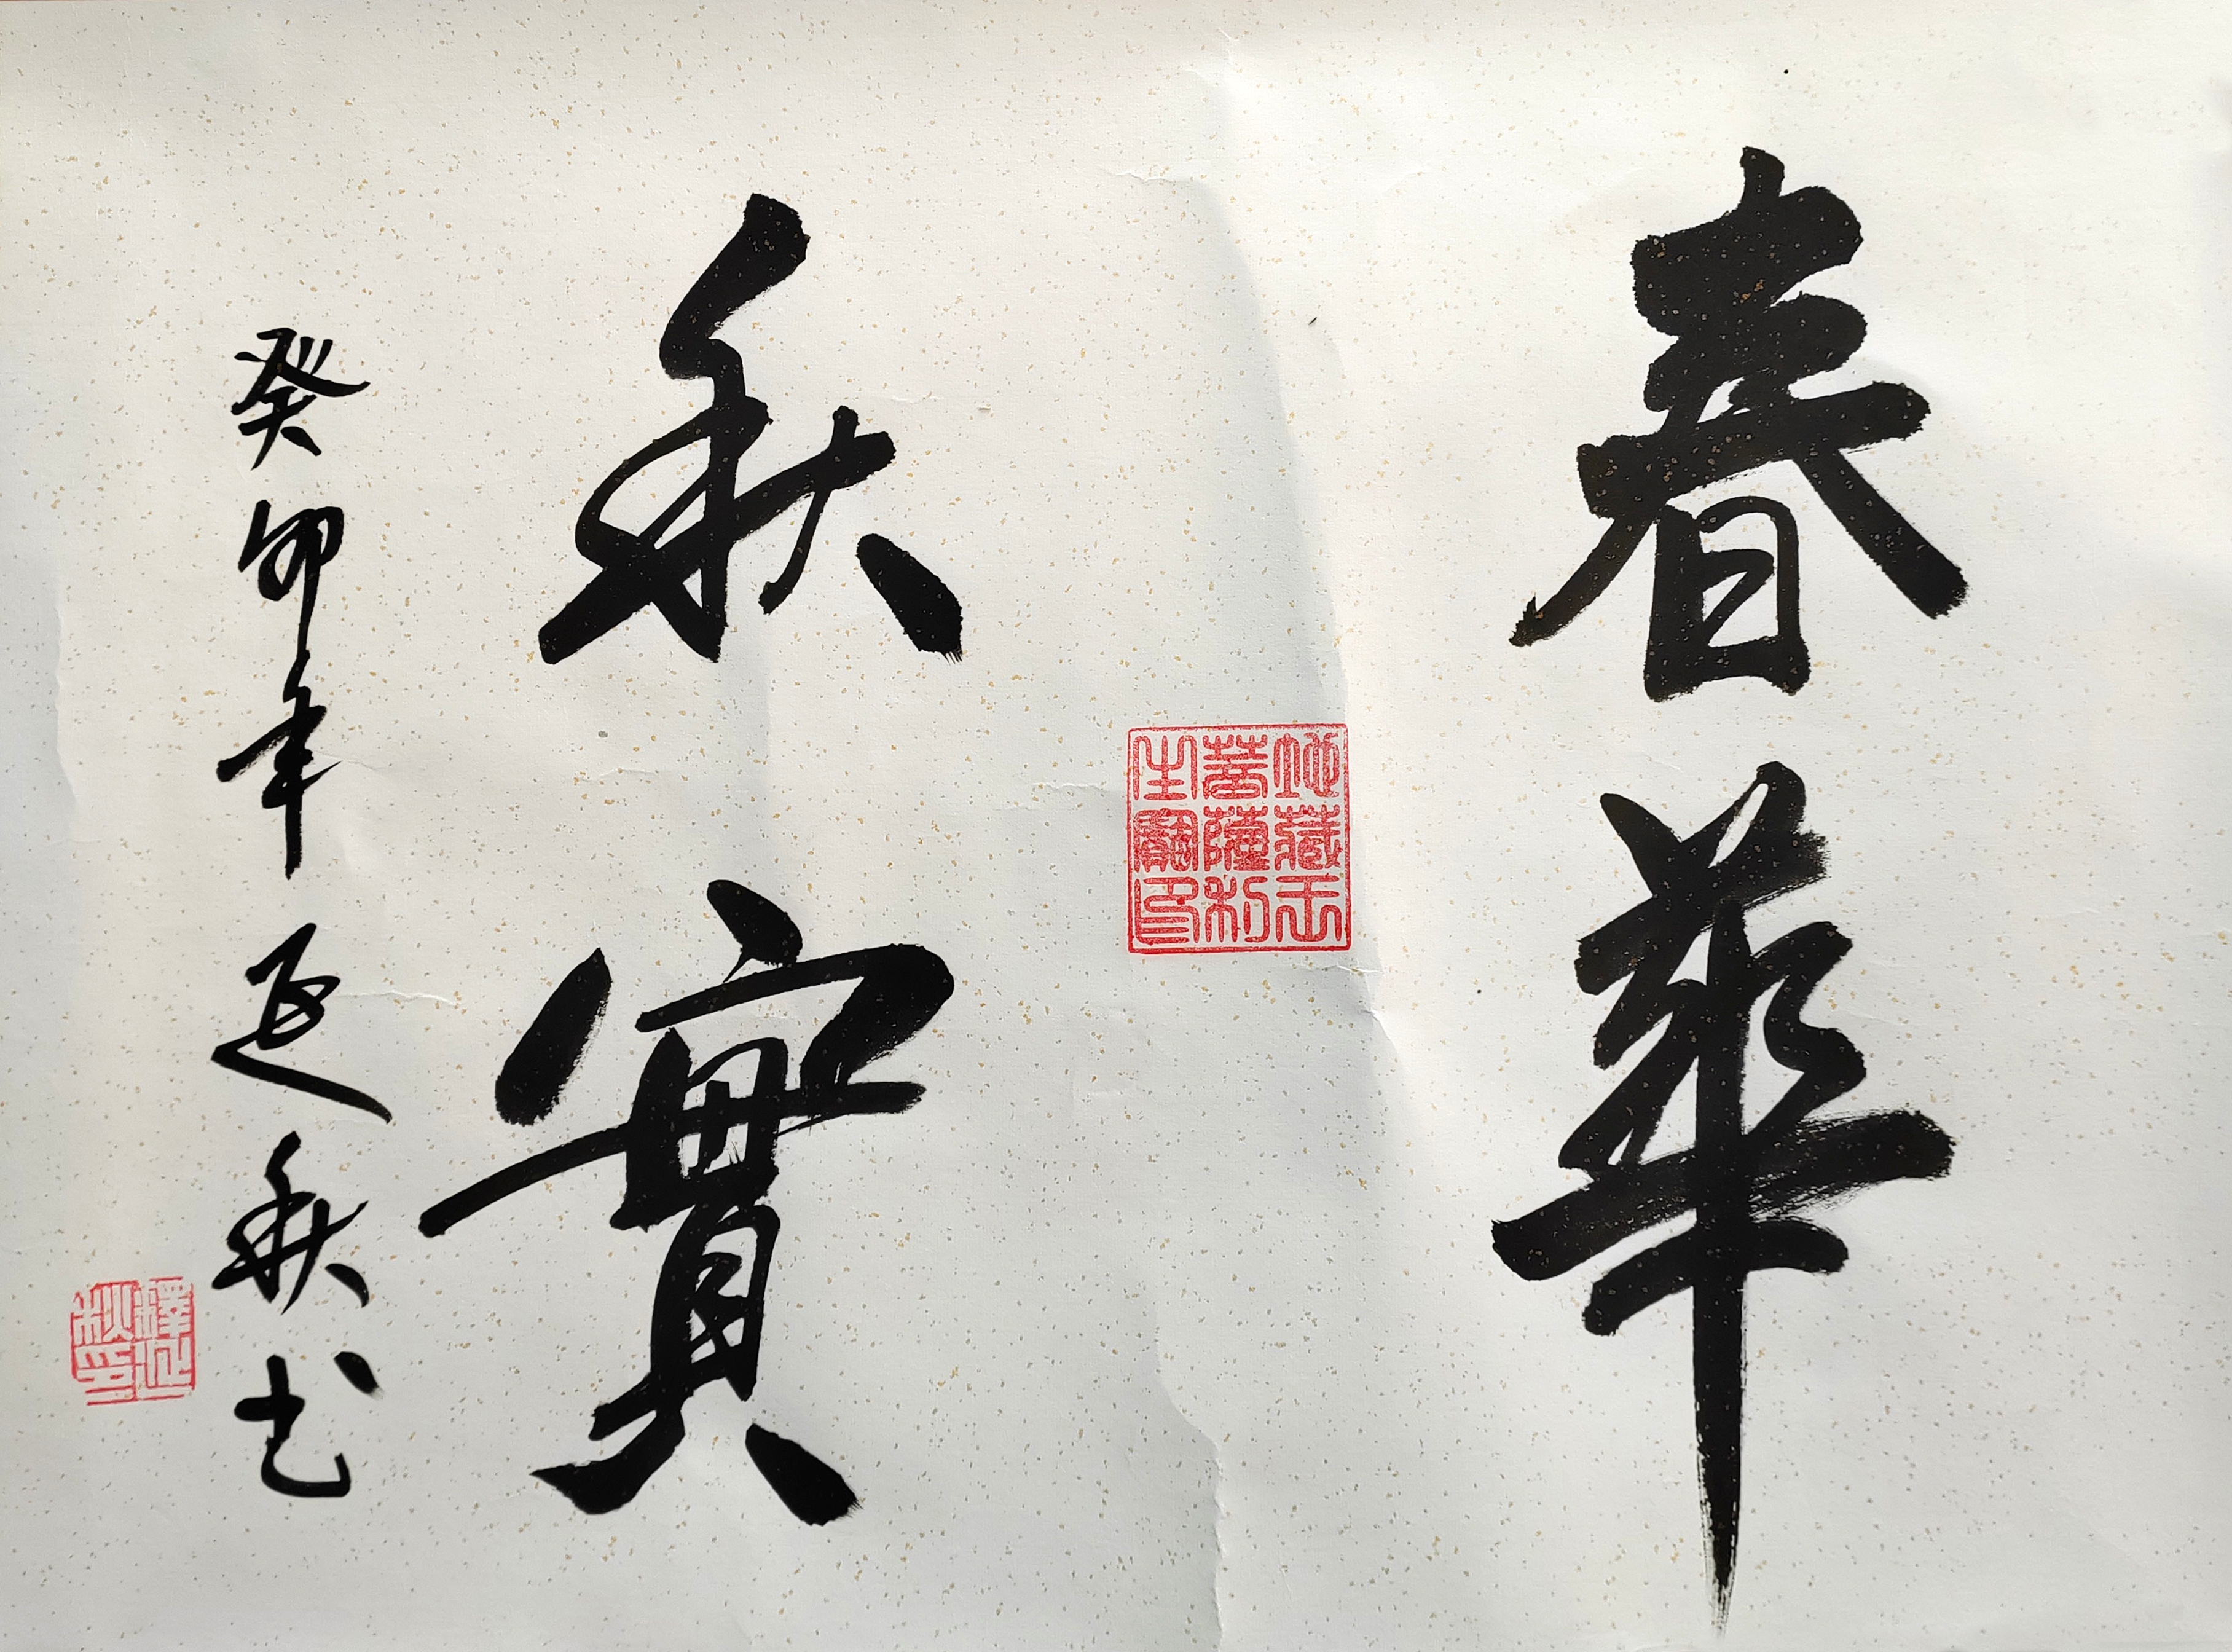 春華
地藏王
菩薩利
生寶印
秋實
癸卯年延秋书
釋延
秋印